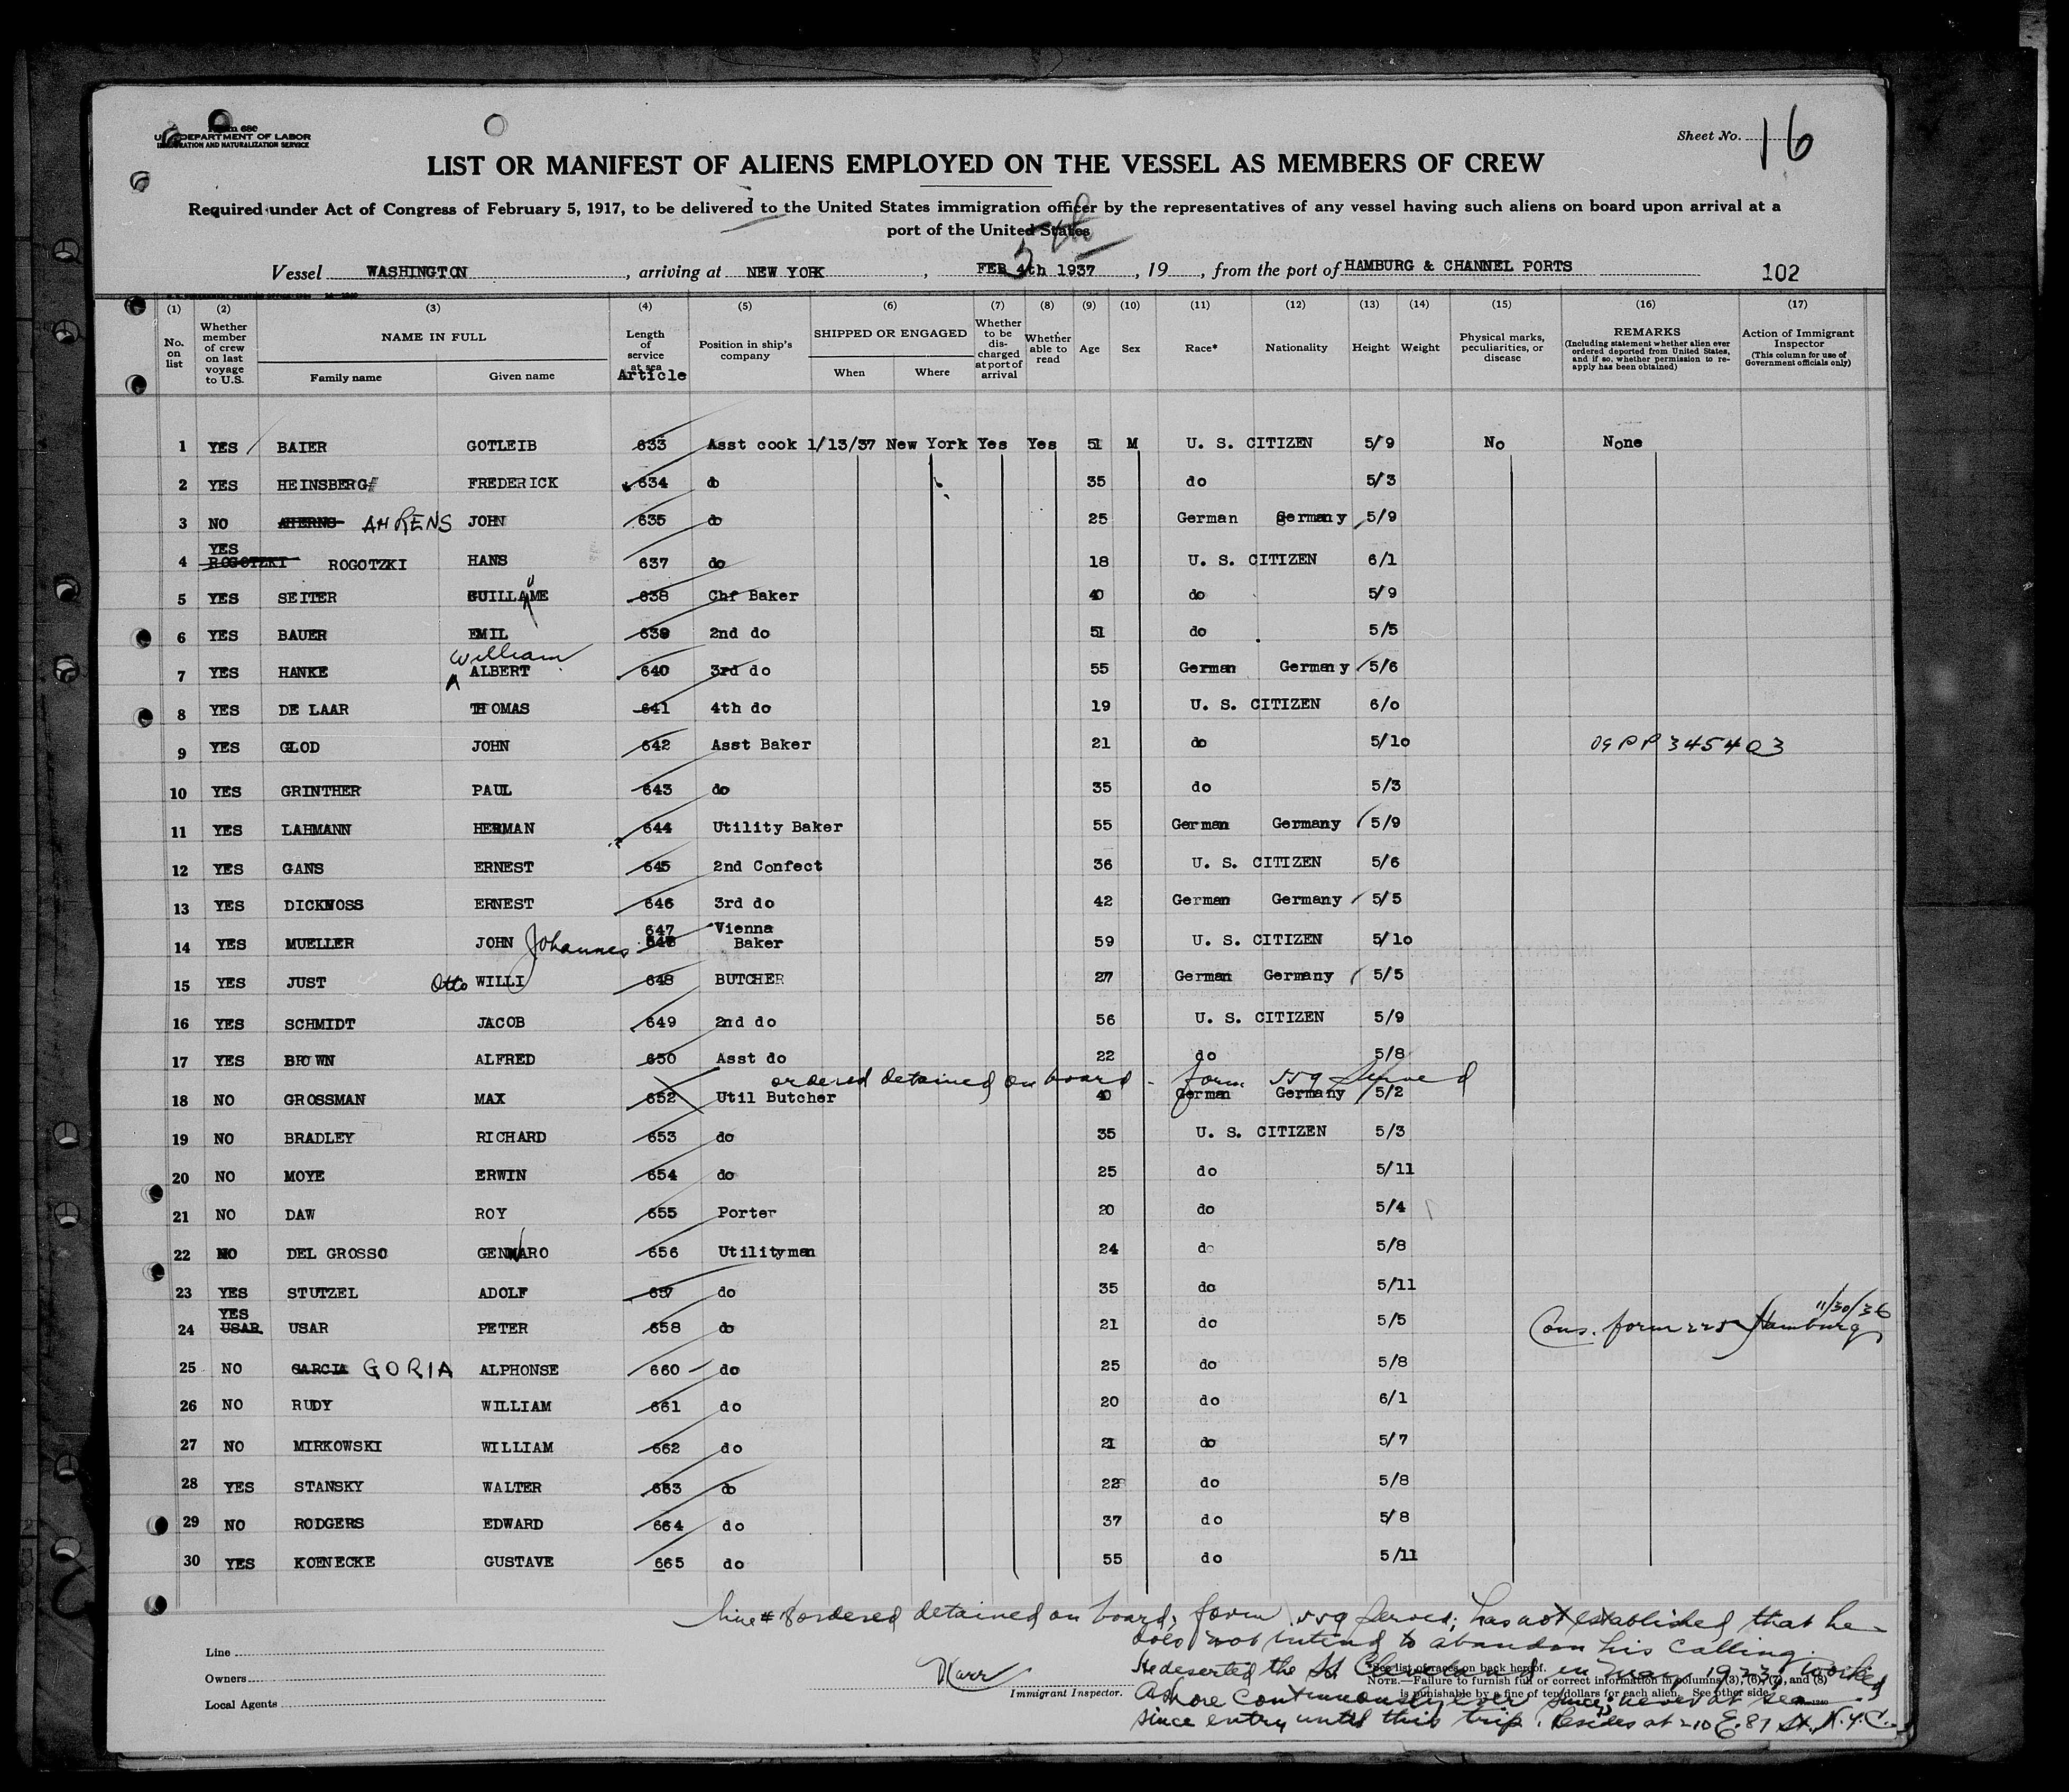 Form 680
U. S. DEPARTMENT OF LABOR
IMMIGRATION AND NATURALIZATION SERVICE
Sheet No. 16
LIST OR MANIFEST OF ALIENS EMPLOYED ON THE VESSEL AS MEMBERS OF CREW
Required under Act of Congress of February 5, 1917, to be delivered to the United States immigration officer by the representatives of any vessel having such aliens on board upon arrival at a
port of the United States
5th
Vessel WASHINGTON, arriving at NEW YORK, FEB 4th 1937, 19, from the port of HAMBURG & CHANNEL PORTS 102
(1) (2) (3) (4) (5) (6) (7) (8) (9) (10) (11) (12) (13) (14) (15) (16) (17)
No. on list
Whether member of crew on last voyage to U.S.
NAME IN FULL
Family name Given name
Length of service at sea
Article
Position in ship's company
SHIPPED OR ENGAGED
When Where
Whether to be discharged at port of arrival
Whether able to read
Age
Sex
Race*
Nationality
Height
Weight
Physical marks, peculiarities, or disease
REMARKS
(Including statement whether alien ever ordered deported from United States, and if so, whether permission to reapply has been obtained)
Action of Immigrant Inspector
(This column for use of Government officials only)
1 YES BAIER GOTLEIB 633 Asst cook 1/13/37 New York Yes Yes 51 M U. S. CITIZEN 5/9 No None
2 YES HEINSBERG FREDERICK 634 do 35 do 5/3
3 NO AHERNS AHRENS JOHN 635 do 25 German Germany 5/9
4 YES ROGOTZKI ROGOTZKI HANS 637 do 18 U. S. CITIZEN 6/1
5 YES SEITER GUILLAUME 638 Chf Baker 40 do 5/9
6 YES BAUER EMIL 639 2nd do 51 do 5/5
7 YES HANKE William ALBERT 640 3rd do 55 German Germany 5/6
8 YES DE LAAR THOMAS 641 4th do 19 U. S. CITIZEN 6/0
9 YES GLOD JOHN 642 Asst Baker 21 do 5/10 PP 345403
10 YES GRINTHER PAUL 643 do 35 do 5/3
11 YES LAHMANN HERMAN 644 Utility Baker 55 German Germany 5/9
12 YES GANS ERNEST 645 2nd Confect 36 U. S. CITIZEN 5/6
13 YES DICKNOSS ERNEST 646 3rd do 42 German Germany 5/5
14 YES MUELLER JOHN Johannes 647 Vienna Baker 59 U. S. CITIZEN 5/10
15 YES JUST Otto WILLI 648 BUTCHER 27 German Germany 5/5
16 YES SCHMIDT JACOB 649 2nd do 56 U. S. CITIZEN 5/9
17 YES BROWN ALFRED 650 Asst do 22 do 5/8
ordered detained on board - form 559 served
18 NO GROSSMAN MAX 652 Util Butcher 40 German Germany 5/2
19 NO BRADLEY RICHARD 653 do 35 U. S. CITIZEN 5/3
20 NO MOYE ERWIN 654 do 25 do 5/11
21 NO DAW ROY 655 Porter 20 do 5/4
22 NO DEL GROSSO GENNARO 656 Utilityman 24 do 5/8
23 YES STUTZEL ADOLF 657 do 35 do 5/11
24 YES USAR USAR PETER 658 do 21 do 5/5 Cons. form 225 Hamburg 11/30/36
25 NO GARCIA GORIA ALPHONSE 660 do 25 do 5/8
26 NO RUDY WILLIAM 661 do 20 do 6/1
27 NO MIRKOWSKI WILLIAM 662 do 21 do 5/7
28 YES STANSKY WALTER 663 do 22 do 5/8
29 NO RODGERS EDWARD 664 do 37 do 5/8
30 YES KOENECKE GUSTAVE 665 do 55 do 5/11
Line # 18 ordered detained on board; form 559 served; has not established that he
does not intend to abandon his calling.
He deserted the SS Cleveland in May 1923; worked
ashore continuously ever since; never at sea
since entry until this trip. Resides at 210 E. 87 St. N.Y.C.
Line
Owners
Local Agents
Immigrant Inspector.
*See list of races on back hereof.
NOTE.—Failure to furnish full or correct information in columns (3), (6), (7), and (8)
is punishable by a fine of ten dollars for each alien. See other side.